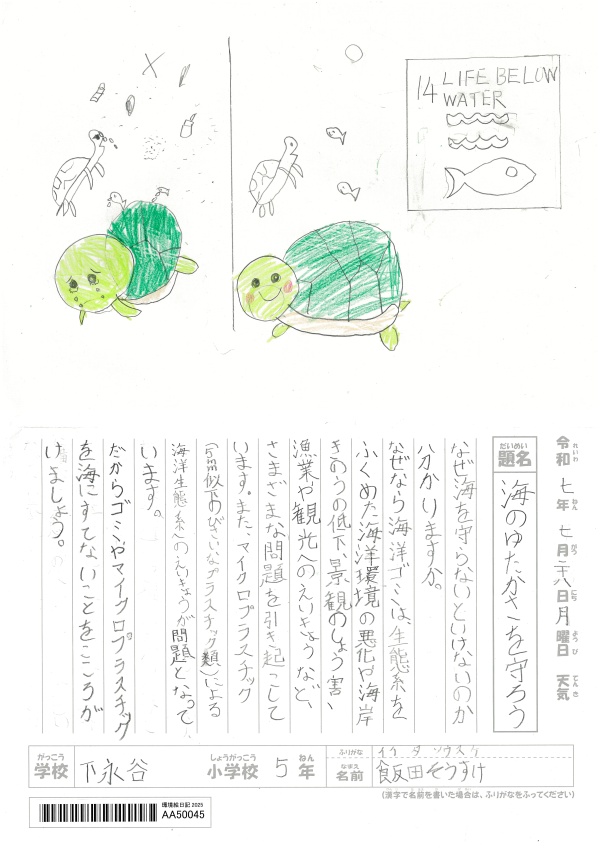 14 LIFE BELOW
WATER
令和七年七月二八日月曜日 天気
れいわ ねん がつ にち ようび てんき
だいめい
題名
海のゆたかさを守ろう
なぜ海を守らないといけないのか
分かりますか。
なぜなら海洋ゴミは、生態系を
ふくめた海洋環境の悪化や海岸
きのうの低下、景観のしょう害、
漁業や観光へのえいきょうなど、
さまざまな問題を引き起こして
います。また、マイクロプラスチック
(5mm以下のびさいなプラスチック類)による
海洋生態系へのえいきょうが問題となって
います。
だからゴミやマイクロプラスチック
を海にすてないことをこころが
けましょう。
がっこう
学校
下永谷
しょうがっこう
小学校
5
ねん
年
ふりがな
イイダ ソウスケ
なまえ
名前
飯田そうすけ
(漢字で名前を書いた場合は、ふりがなをふってください)
環境絵日記 2025
AA50045